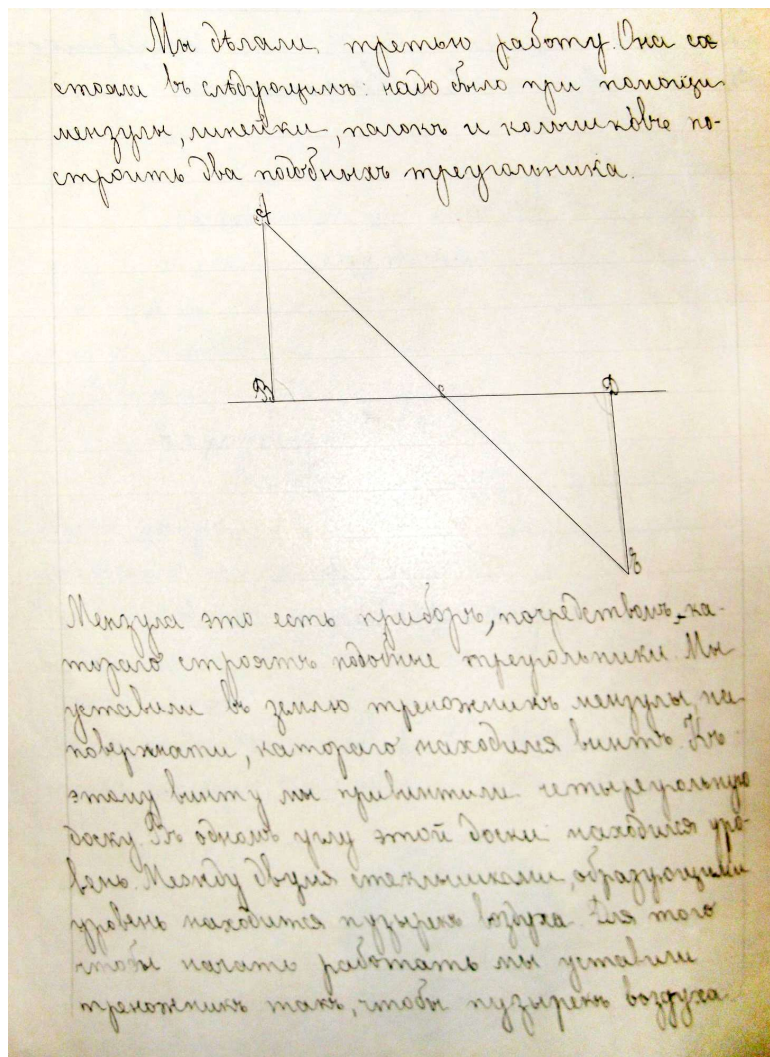 Мы дѣлали третью работу. Она сос
стояли въ слѣдующимъ: надо было при помощи
мензулы, линейки, палокъ и колышковъ по-
строить два подобныхъ треугольника.
A
B
C
D
E
Мензула это есть приборъ, посредствомъ ка-
тораго строятъ подобные треугольники. Мы
уставили въ землю треножникъ мензулы, на
повержнати, катораго находился винтъ. Къ
этому винту мы привинтили четыреугольную
доску. Въ одномъ углу этой доски находился уро-
вень. Между двумя стеклышками, образующими
уровень находится пузырекъ воздуха. Для того
чтобы начать работать мы уставили
треножникъ такъ, чтобы пузырекъ воздуха